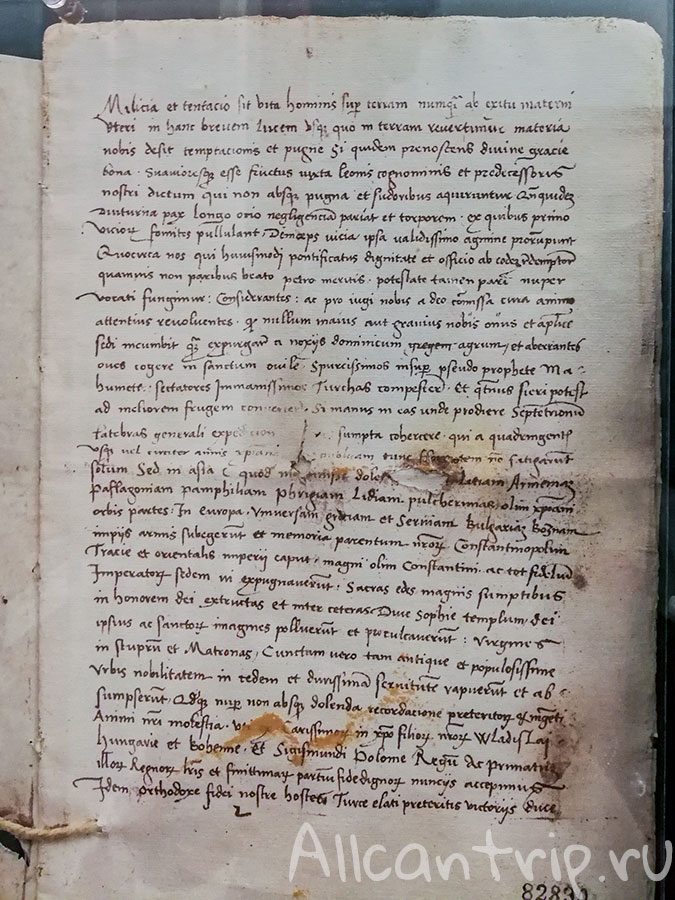 Milicia et tentacio sit vita hominis sup terram numq̃ ab exitu materni
Vteri in hanc brevem lucem Vsq̃ quo in terram revertimur materia
nobis desit temptacionis et pugne Si quidem prenoscens divine gracie
bona. Suavioresq̃ esse fructus iuxta leonis cognominis et predecessoris
nostri diceum qui non absq̃ pugna et sudoribus aquiruntur
Diuturna pax longo ocio negligenciam pariat et torporem. ex quibus primo
Vicior fomites pullulant. Deinceps vicia ipsa validissimo agmine prorumpunt
Quocirca nos qui huiusmodi pontificatus dignitate et officio ab eodem redemptor
quamvis non paribus beato petro meritis. potestate tamen pari nuper
vocati fungimur: Considerantes: ac pro iugi nobis a deo comissa cura animo
attentius revolventes. q̃ nullum maius aut gravius nobis onus et aplice
sedi incumbit q̃ expurgare a noxiis dominicum agrum, et aberrantes
oves cogere in sanctum ovile. Spurcissimos insup pseudo prophete Ma-
humete. sectatores Immanissimos Turchas compescere. Et q̃tenus fieri potest
ad meliorem frugem Si manus in eas unde prodiere Septetrionu
latebras generali sumpta cohercere. qui a quadringentis
usq̃ vel circiter annis tunc nō fatigarunt
solum Sed in asia Armeniaz
Paflagoniam pamphiliam Phrigiam Lidiam pulcherimas, olim xp̄iani
orbis partes: In europa. Vniversam greciam et Serviam Bulgariaz Boznam
impiis armis subegerūt et memoria parentum nr̄or Constantinopolim
Tracie et orientalis imperii caput, magni olim Constantini. ac tot fideliū
Imperator sedem vi expugnaverūt: Sacras edes magnis sumptibus
in honorem dei extructas et inter ceteras Dive Sophie templum, dei
ipsius ac sanctor imagines polluerūt et proculcaverūt: Virgines
in stuprū et Matronas, Cunctam vero tam antique et populosissime
Vrbis nobilitatem in cedem et durissimā servitutē rapuerūt et ab-
sumpserūt. Qdq̃ nup non absq̃ dolenda recordacione preteritor et ingeti
Animi nr̄i molestia. carissimor in xp̄o filior nr̄or Wladislai
Hungarie et Bohemie. Et Sigismundi Polome Regū Ac primatū
illor Regnor lr̄is et finitimar partiū fide dignor nunciis accepimus
Idem Orthodoxe fidei nostre hostes Turce elati preteritis victoriis duce
2
Allcantrip.ru